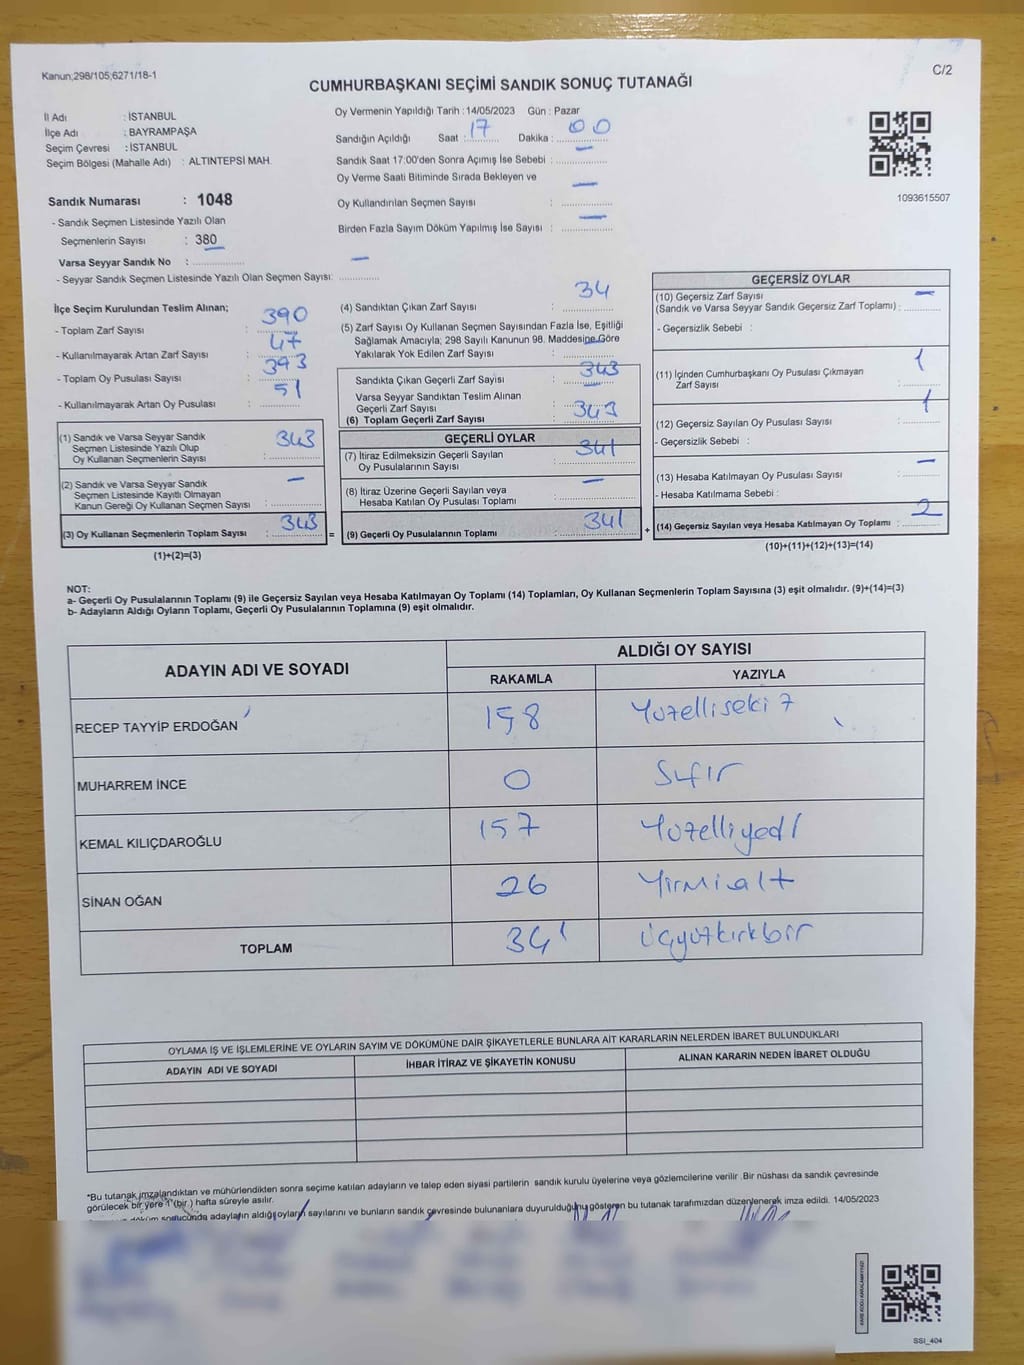 Kanun;298/105;6271/18-1
C/2
CUMHURBAŞKANI SEÇİMİ SANDIK SONUÇ TUTANAĞI
İl Adı : İSTANBUL
İlçe Adı : BAYRAMPAŞA
Seçim Çevresi : İSTANBUL
Seçim Bölgesi (Mahalle Adı) : ALTINTEPSİ MAH.
Oy Vermenin Yapıldığı Tarih : 14/05/2023 Gün : Pazar
Sandığın Açıldığı Saat : 17 Dakika : 00
Sandık Saat 17:00'den Sonra Açımış İse Sebebi : —
Oy Verme Saati Bitiminde Sırada Bekleyen ve
Oy Kullandırılan Seçmen Sayısı : —
Birden Fazla Sayım Döküm Yapılmış İse Sayısı : —
1093615507
Sandık Numarası : 1048
- Sandık Seçmen Listesinde Yazılı Olan
Seçmenlerin Sayısı : 380
Varsa Seyyar Sandık No :
- Seyyar Sandık Seçmen Listesinde Yazılı Olan Seçmen Sayısı: —
İlçe Seçim Kurulundan Teslim Alınan;
- Toplam Zarf Sayısı : 390
- Kullanılmayarak Artan Zarf Sayısı : 47
- Toplam Oy Pusulası Sayısı : 393
- Kullanılmayarak Artan Oy Pusulası : 51
(1) Sandık ve Varsa Seyyar Sandık
Seçmen Listesinde Yazılı Olup
Oy Kullanan Seçmenlerin Sayısı : 343
(2) Sandık ve Varsa Seyyar Sandık
Seçmen Listesinde Kayıtlı Olmayan
Kanun Gereği Oy Kullanan Seçmen Sayısı : —
(3) Oy Kullanan Seçmenlerin Toplam Sayısı : 343
(1)+(2)=(3)
(4) Sandıktan Çıkan Zarf Sayısı : 34
(5) Zarf Sayısı Oy Kullanan Seçmen Sayısından Fazla İse, Eşitliği
Sağlamak Amacıyla; 298 Sayılı Kanunun 98. Maddesine Göre
Yakılarak Yok Edilen Zarf Sayısı : —
Sandıkta Çıkan Geçerli Zarf Sayısı : 343
Varsa Seyyar Sandıktan Teslim Alınan
Geçerli Zarf Sayısı : —
(6) Toplam Geçerli Zarf Sayısı : 343
GEÇERLİ OYLAR
(7) İtiraz Edilmeksizin Geçerli Sayılan
Oy Pusulalarının Sayısı : 341
(8) İtiraz Üzerine Geçerli Sayılan veya
Hesaba Katılan Oy Pusulası Toplamı : —
= (9) Geçerli Oy Pusulalarının Toplamı : 341
GEÇERSİZ OYLAR
(10) Geçersiz Zarf Sayısı
(Sandık ve Varsa Seyyar Sandık Geçersiz Zarf Toplamı) : —
- Geçersizlik Sebebi :
(11) İçinden Cumhurbaşkanı Oy Pusulası Çıkmayan
Zarf Sayısı : 1
(12) Geçersiz Sayılan Oy Pusulası Sayısı : 1
- Geçersizlik Sebebi :
(13) Hesaba Katılmayan Oy Pusulası Sayısı : —
- Hesaba Katılmama Sebebi :
+ (14) Geçersiz Sayılan veya Hesaba Katılmayan Oy Toplamı : 2
(10)+(11)+(12)+(13)=(14)
NOT:
a- Geçerli Oy Pusulalarının Toplamı (9) ile Geçersiz Sayılan veya Hesaba Katılmayan Oy Toplamı (14) Toplamları, Oy Kullanan Seçmenlerin Toplam Sayısına (3) eşit olmalıdır. (9)+(14)=(3)
b- Adayların Aldığı Oyların Toplamı, Geçerli Oy Pusulalarının Toplamına (9) eşit olmalıdır.
ADAYIN ADI VE SOYADI
ALDIĞI OY SAYISI
RAKAMLA YAZIYLA
RECEP TAYYİP ERDOĞAN 158 Yüzellisekiz
MUHARREM İNCE 0 Sıfır
KEMAL KILIÇDAROĞLU 157 Yüzelliyedi
SİNAN OĞAN 26 Yirmialt
TOPLAM 341 Üçyüzkırkbir
OYLAMA İŞ VE İŞLEMLERİNE VE OYLARIN SAYIM VE DÖKÜMÜNE DAİR ŞİKAYETLERLE BUNLARA AİT KARARLARIN NELERDEN İBARET BULUNDUKLARI
ADAYIN ADI VE SOYADI İHBAR İTİRAZ VE ŞİKAYETİN KONUSU ALINAN KARARIN NEDEN İBARET OLDUĞU
*Bu tutanak imzalandıktan ve mühürlendikten sonra seçime katılan adayların ve talep eden siyasi partilerin sandık kurulu üyelerine veya gözlemcilerine verilir. Bir nüshası da sandık çevresinde
görülecek bir yere 1 (bir) hafta süreyle asılır.
döküm sonucunda adayların aldığı oyların sayılarını ve bunların sandık çevresinde bulunanlara duyurulduğunu gösteren bu tutanak tarafımızdan düzenlenerek imza edildi. 14/05/2023
SSI_404